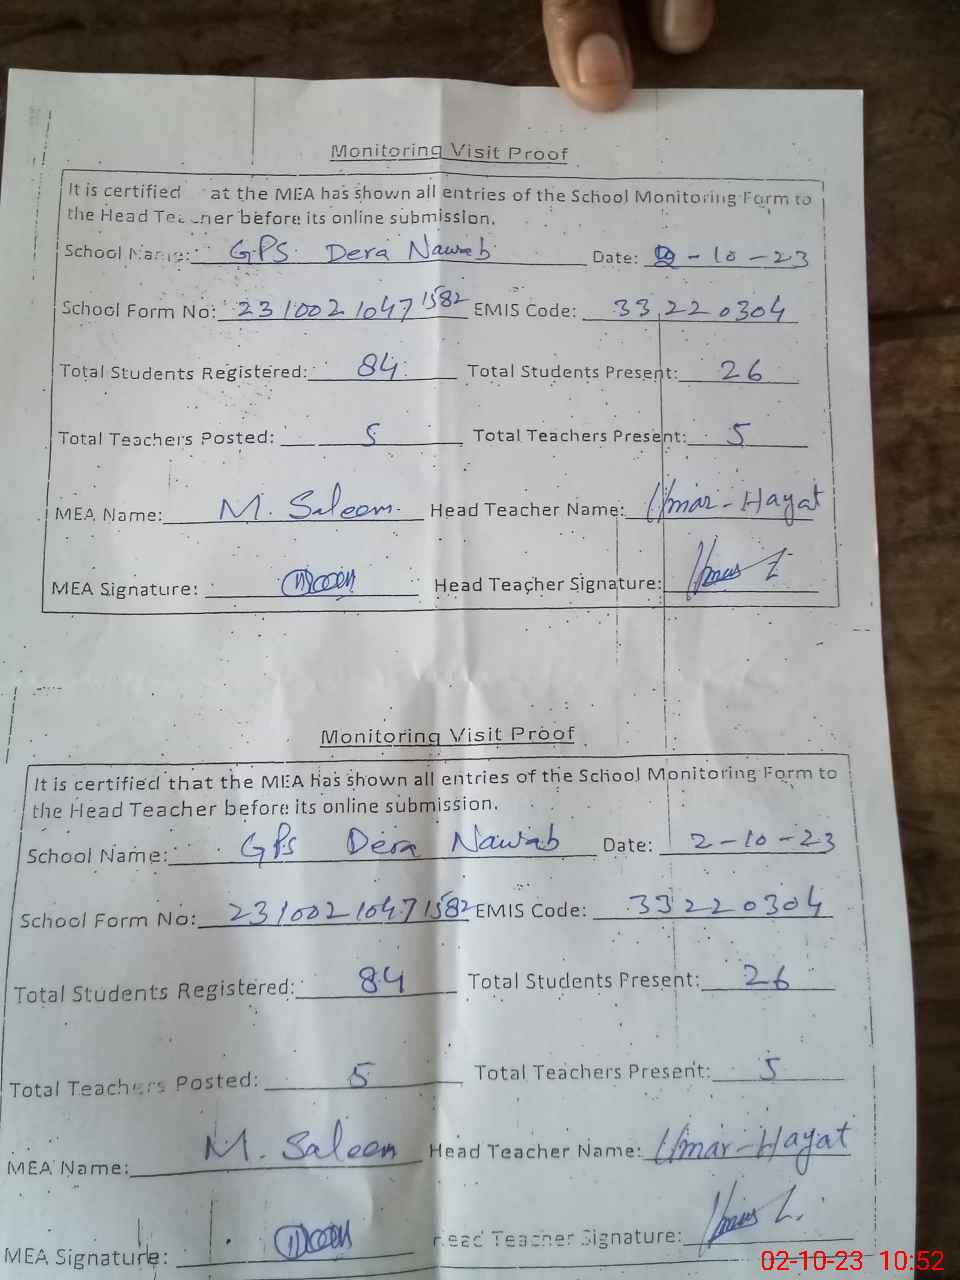 Monitoring Visit Proof
It is certified at the MEA has shown all entries of the School Monitoring Form to
the Head Teacher before its online submission.
School Name: GPS Dera Nawab Date: -10-23
School Form No: 23100210471582 EMIS Code: 33220304
Total Students Registered: 84 Total Students Present: 26
Total Teachers Posted: 5 Total Teachers Present: 5
MEA Name: M. Saleem Head Teacher Name: Umar-Hayat
MEA Signature: Head Teacher Signature:
Monitoring Visit Proof
It is certified that the MEA has shown all entries of the School Monitoring Form to
the Head Teacher before its online submission.
School Name: GPS Dera Nawab Date: 2-10-23
School Form No: 23100210471582 EMIS Code: 33220304
Total Students Registered: 84 Total Students Present: 26
Total Teachers Posted: 5 Total Teachers Present: 5
MEA Name: M. Saleem Head Teacher Name: Umar-Hayat
MEA Signature: Head Teacher Signature:
02-10-23 10:52